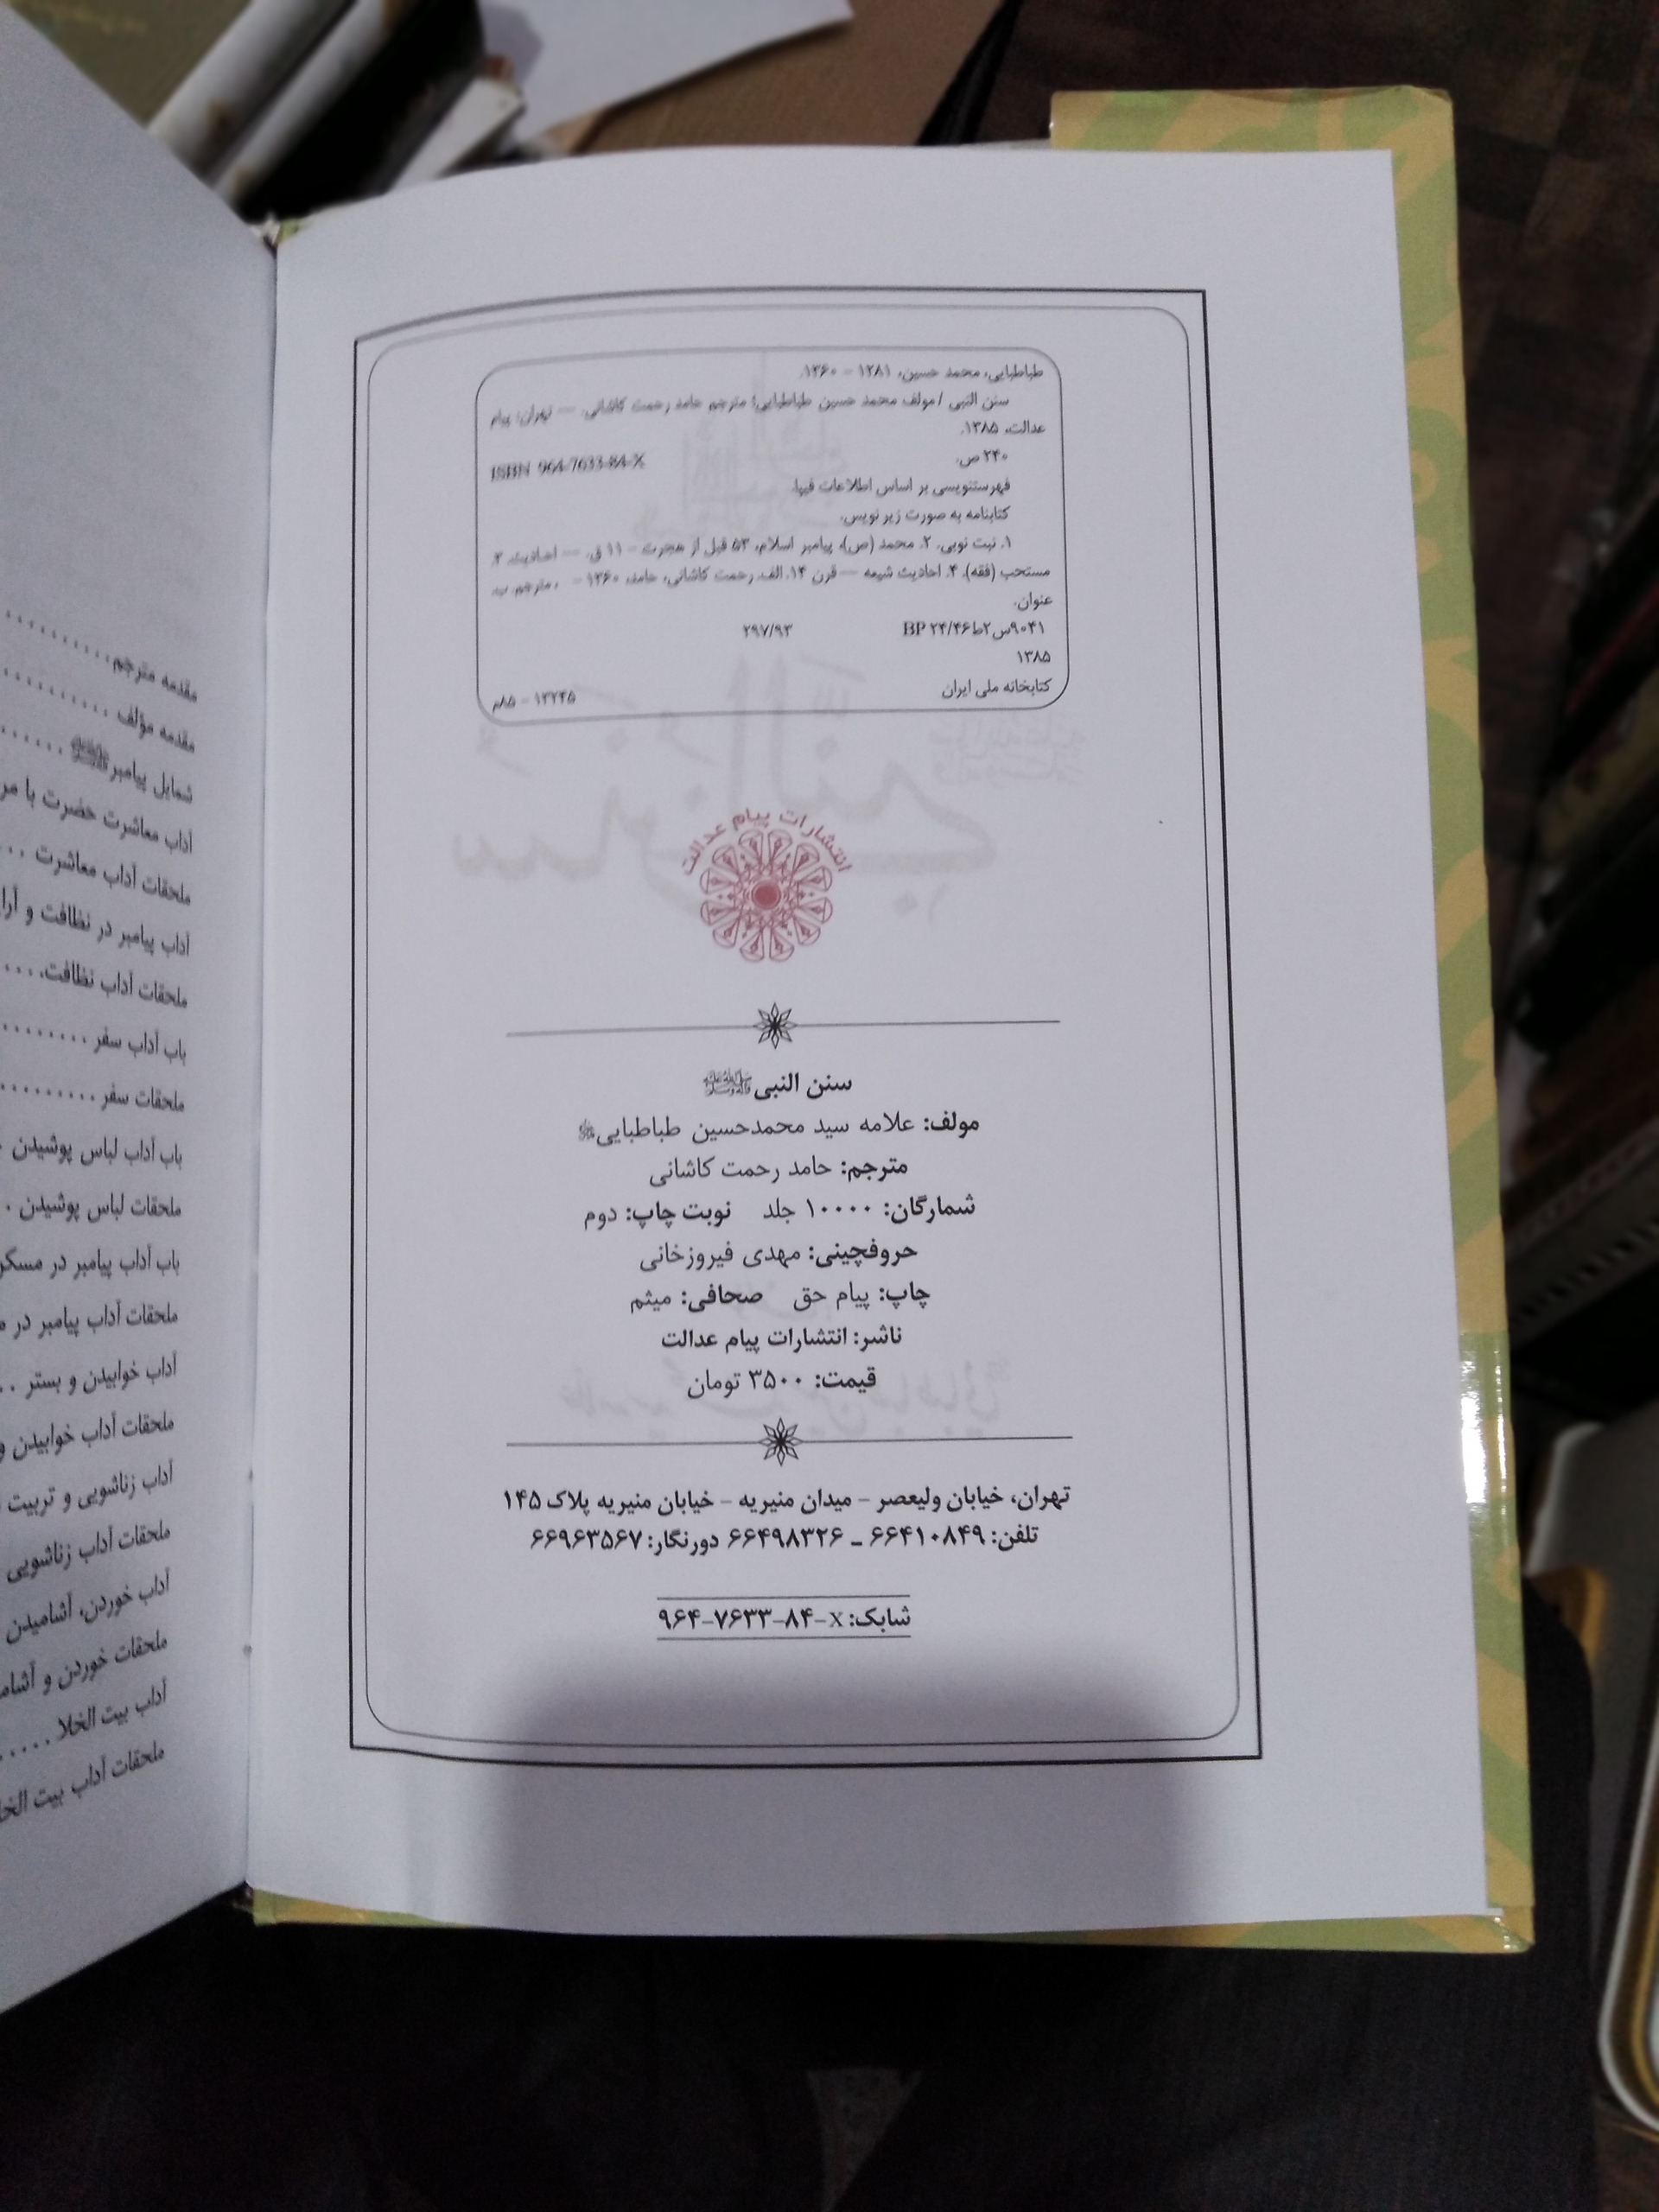 طباطبایی، محمد حسین، ۱۲۸۱ - ۱۳۶۰.
سنن النبی / مولف محمد حسین طباطبایی؛ مترجم حامد رحمت کاشانی. — تهران: پیام
عدالت، ۱۳۸۵.
۲۴۰ ص. ISBN 964-7633-84-X
فهرستنویسی بر اساس اطلاعات فیپا.
کتابنامه به صورت زیر نویس.
۱. نبت نوبی. ۲. محمد (ص)، پیامبر اسلام، ۵۳ قبل از هجرت - ۱۱ ق. — احادیث. ۳.
مستحب (فقه). ۴. احادیث شیعه — قرن ۱۴. الف. رحمت کاشانی، حامد، ۱۳۶۰ - ، مترجم. ب.
عنوان.
۹۰۴۱س۲ط۲۴/۴۶ BP ۲۹۷/۹۳
۱۳۸۵
کتابخانه ملی ایران ۱۳۲۴۵ - ۸۵م
انتشارات پیام عدالت
سنن النبی ﷺ
مولف: علامه سید محمدحسین طباطبایی
مترجم: حامد رحمت کاشانی
شمارگان: ۱۰۰۰۰ جلد نوبت چاپ: دوم
حروفچینی: مهدی فیروزخانی
چاپ: پیام حق صحافی: میثم
ناشر: انتشارات پیام عدالت
قیمت: ۳۵۰۰ تومان
تهران، خیابان ولیعصر - میدان منیریه - خیابان منیریه پلاک ۱۴۵
تلفن: ۶۶۴۱۰۸۴۹ ـ ۶۶۴۹۸۳۲۶ دورنگار: ۶۶۹۶۳۵۶۷
شابک: X-۹۶۴-۷۶۳۳-۸۴
مقدمه مترجم..........
مقدمه مؤلف ..........
شمایل پیامبر ﷺ ......
آداب معاشرت حضرت با
ملحقات آداب معاشرت ...
آداب پیامبر در نظافت و
ملحقات آداب نظافت....
باب آداب سفر .........
ملحقات سفر ..........
باب آداب لباس پوشیدن .
ملحقات لباس پوشیدن .
باب آداب پیامبر در
ملحقات آداب پیامبر در
آداب خوابیدن و بستر ..
ملحقات آداب خوابیدن و
آداب زناشویی و تربیت
ملحقات آداب زناشویی
آداب خوردن، آشامیدن
ملحقات خوردن و
آداب بیت الخلا .....
ملحقات آداب بیت